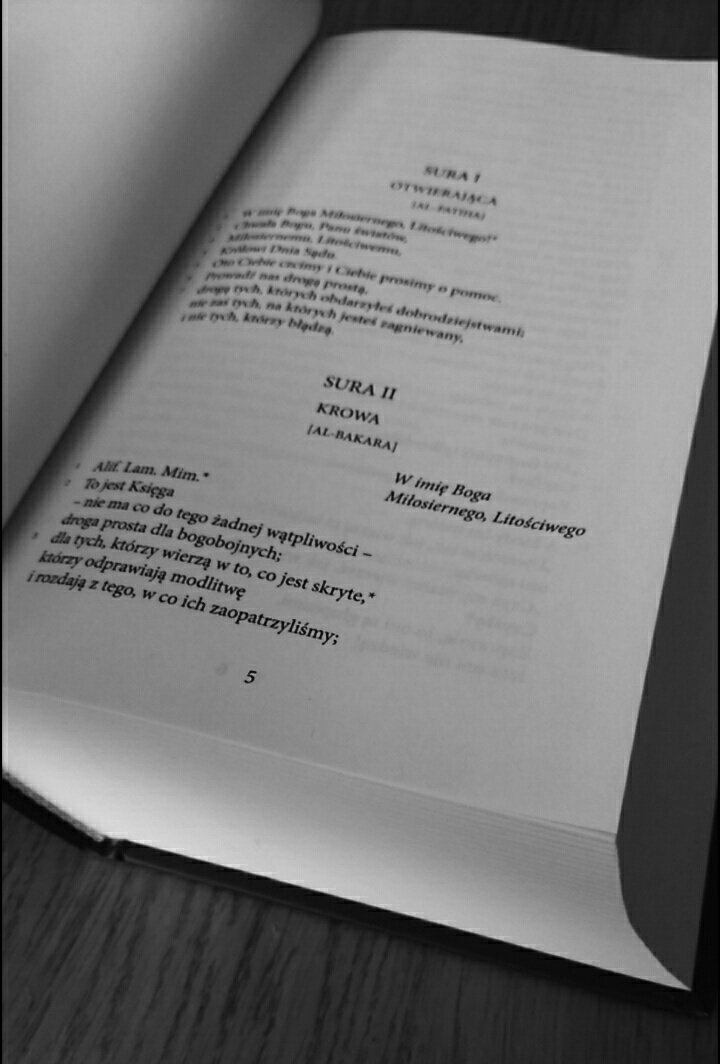 SURA I
OTWIERAJĄCA
[AL-FATIHA]
1 W imię Boga Miłosiernego, Litościwego!*
2 Chwała Bogu, Panu światów,
3 Miłosiernemu, Litościwemu,
4 Królowi Dnia Sądu.
5 Oto Ciebie czcimy i Ciebie prosimy o pomoc.
6 Prowadź nas drogą prostą,
7 drogą tych, których obdarzyłeś dobrodziejstwami;
nie zaś tych, na których jesteś zagniewany,
i nie tych, którzy błądzą.
SURA II
KROWA
[AL-BAKARA]
W imię Boga
Miłosiernego, Litościwego
1 Alif. Lam. Mim.*
2 To jest Księga
– nie ma co do tego żadnej wątpliwości –
droga prosta dla bogobojnych;
3 dla tych, którzy wierzą w to, co jest skryte,*
którzy odprawiają modlitwę
i rozdają z tego, w co ich zaopatrzyliśmy;
5